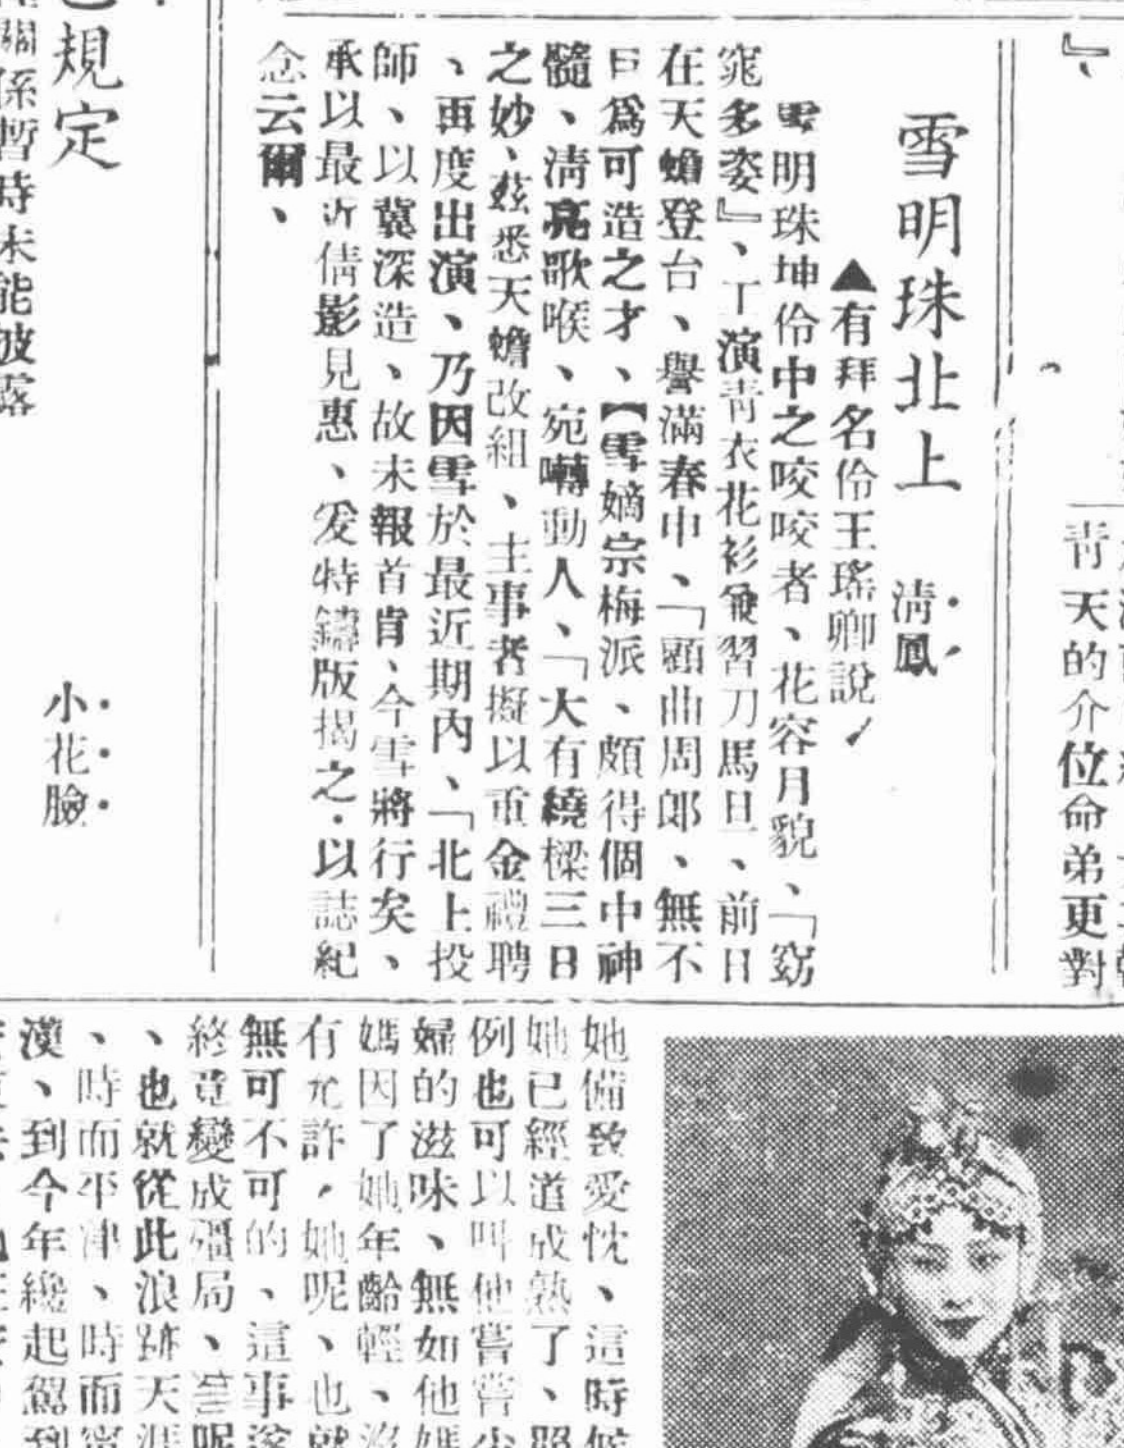 』、
青天的介位命弟更對
雪明珠北上 淸鳳
▲有拜名伶王瑤卿說
雪明珠坤伶中之咬咬者、花容月貌、「窈
窕多姿』、丁演靑衣花衫兼習刀馬旦、前日
在天蟾登台、譽滿春申、「顧曲周郞、無不
目爲可造之才、【雪嫡宗梅派、頗得個中神
髓、淸亮歌喉、宛囀動人、「大有繞樑三日
之妙、茲悉天蟾改組、主事者擬以重金禮聘
、再度出演、乃因雪於最近期內、「北上投
師、以冀深造、故未報首肯、今雪將行矣、
承以最近倩影見惠、爰特鑄版揭之·以誌紀
念云爾、
規定
關係暫時未能披露
小花臉
她備致愛忱、這時候
她已經道成熟了、照
例也可以叫他嘗嘗少
婦的滋味、無如他媽
媽因了她年齡輕、沒
有允許，她呢、也就
無可不可的、這事遂
終竟變成殭局、呢
、也就從此浪跡天涯
、時而平津、時而寗
漢、到今年纔起程到